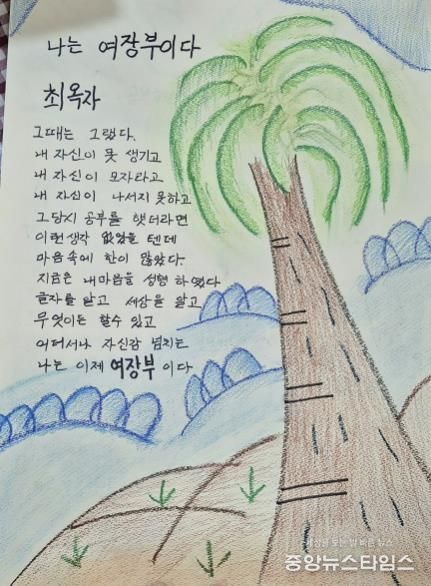 나는 여장부이다
최옥자
그때는 그랬다.
내 자신이 못 생기고
내 자신이 모자라고
내 자신이 나서지 못하고
그당시 공부를 햇더라면
이런생각 없었을 텐데
마음속에 한이 많았다.
지금은 내마음을 성형 하였다
글자를 알고 세상을 알고
무엇이든 할수 있고
어디서나 자신감 넘치는
나는 이제 여장부 이다
중앙뉴스타임스